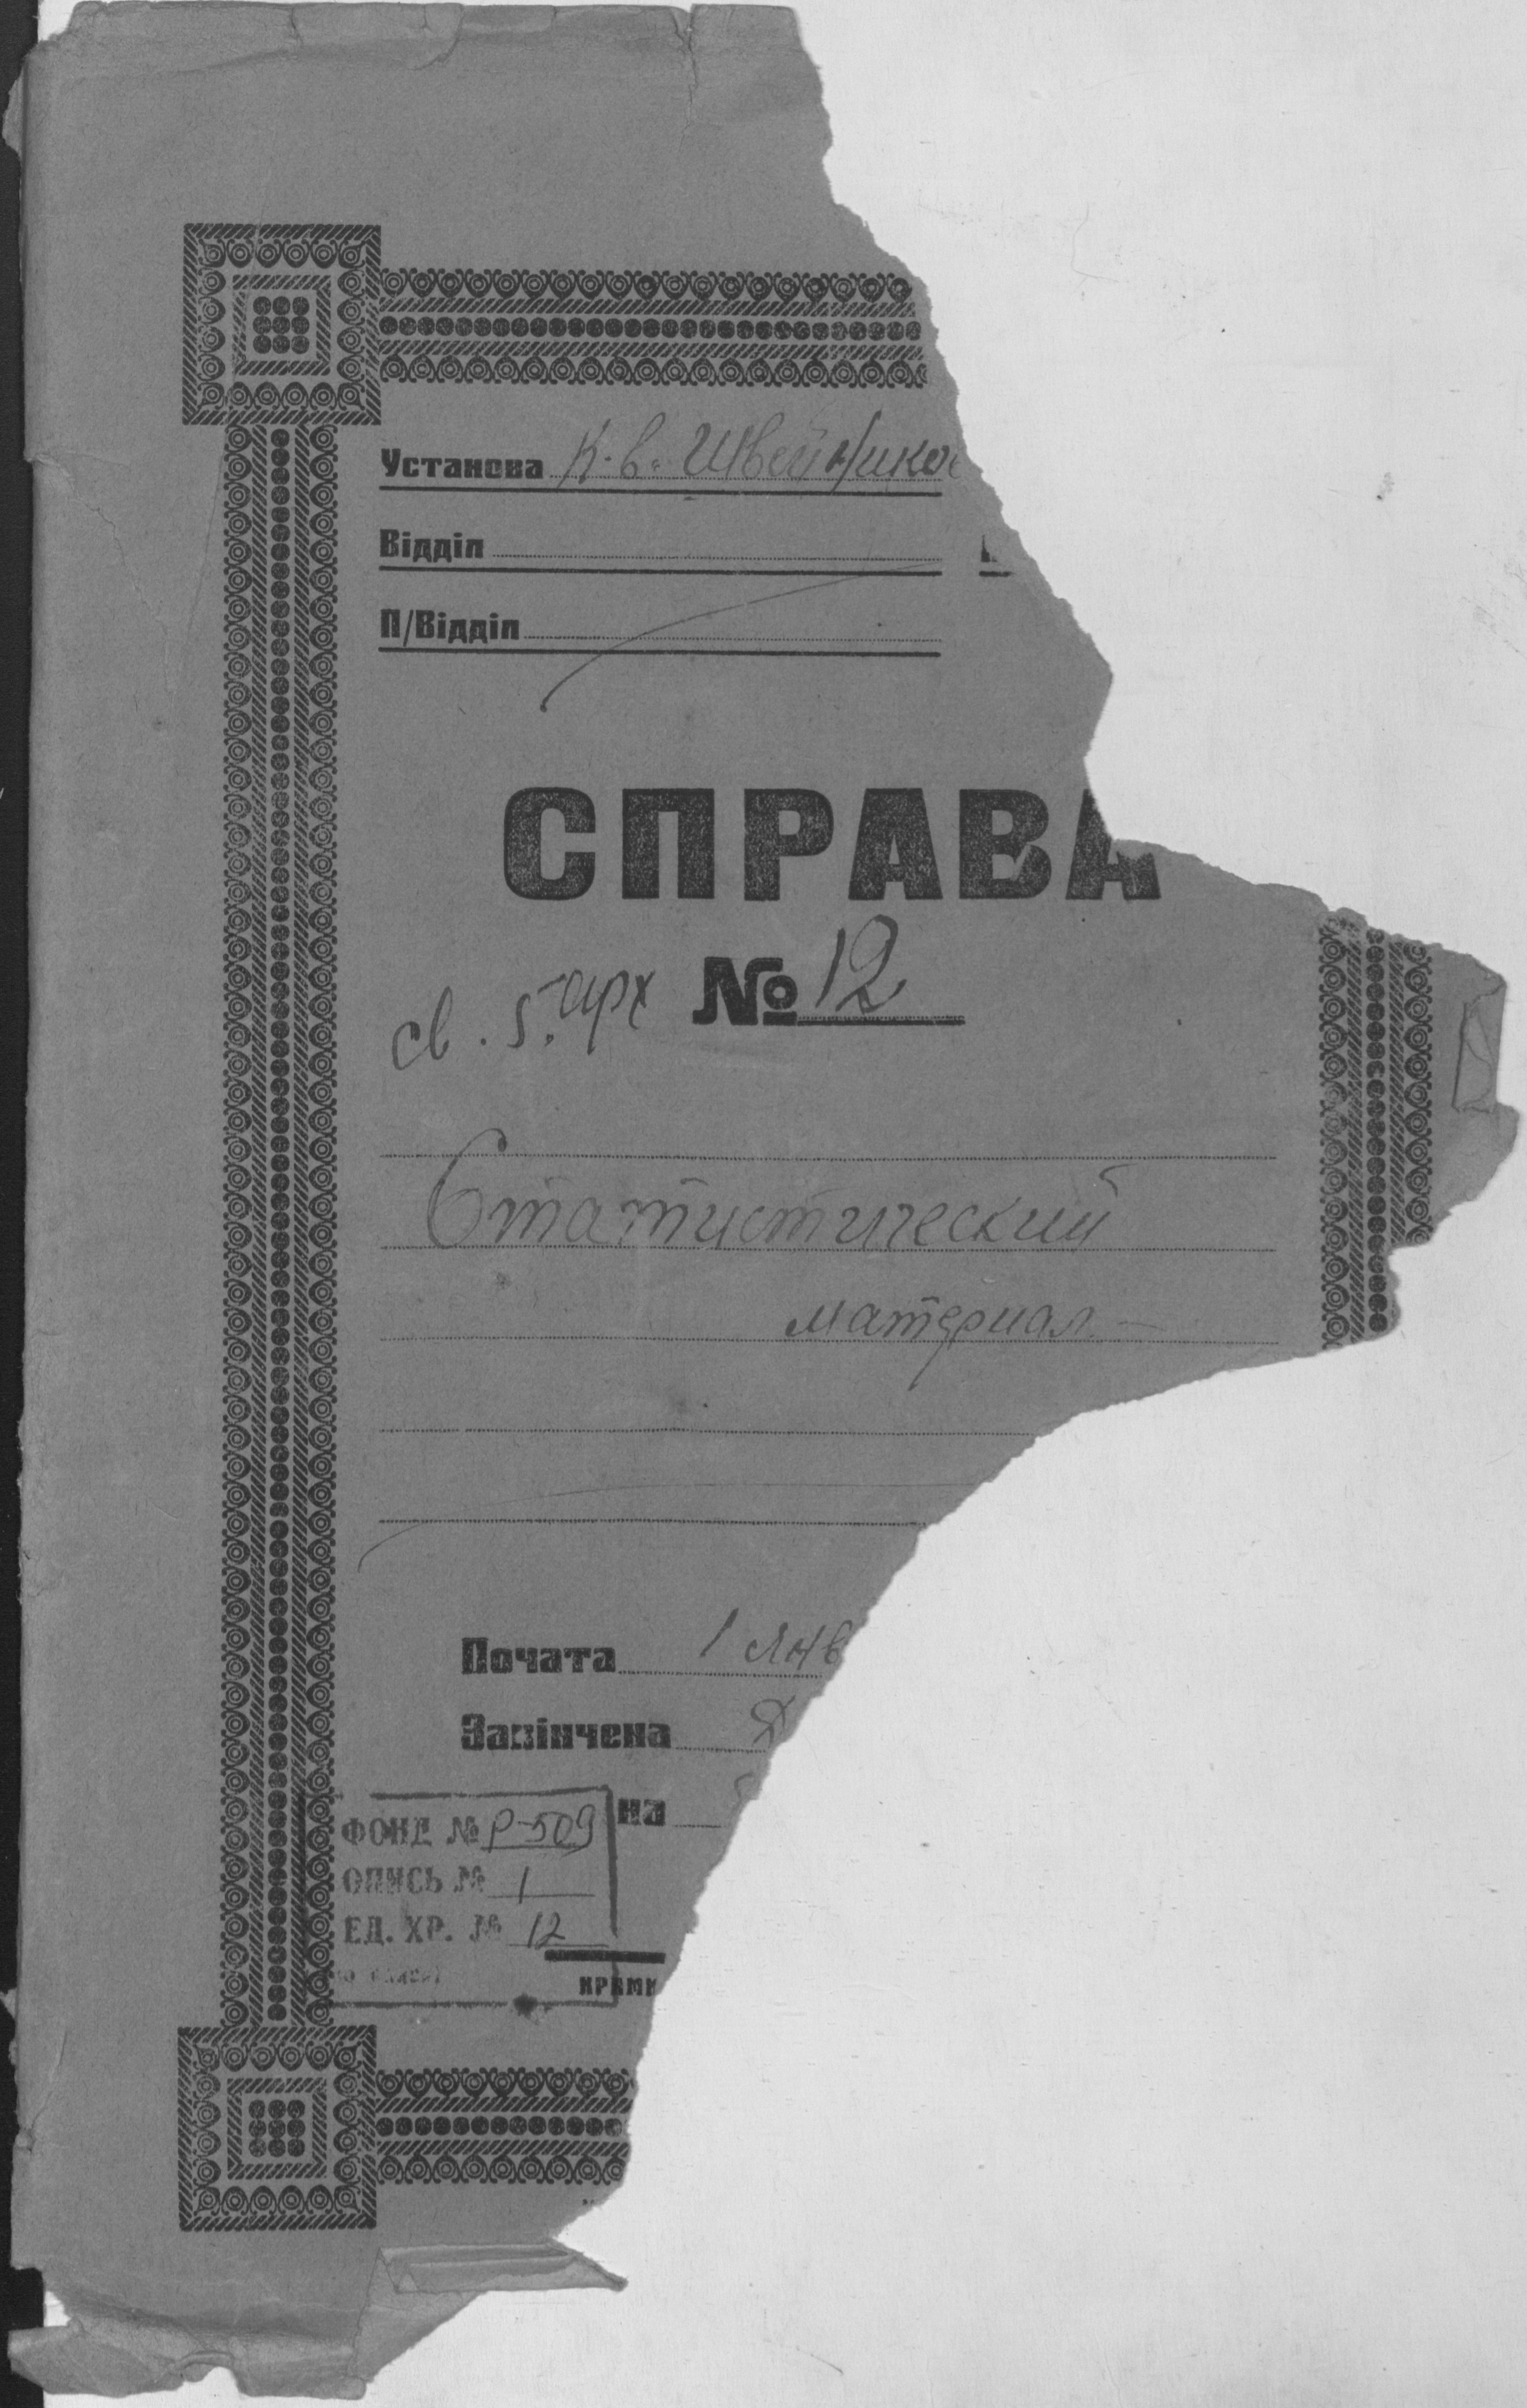 Установа К.в. Швейников
Відділ
П/Відділ
СПРАВА
№ 12
св. 5. арх
Статистический
материал. –
Почата 1 янв
Закінчена
на
ФОНД № Р-509
ОПИСЬ № 1
ЕД. ХР. № 12